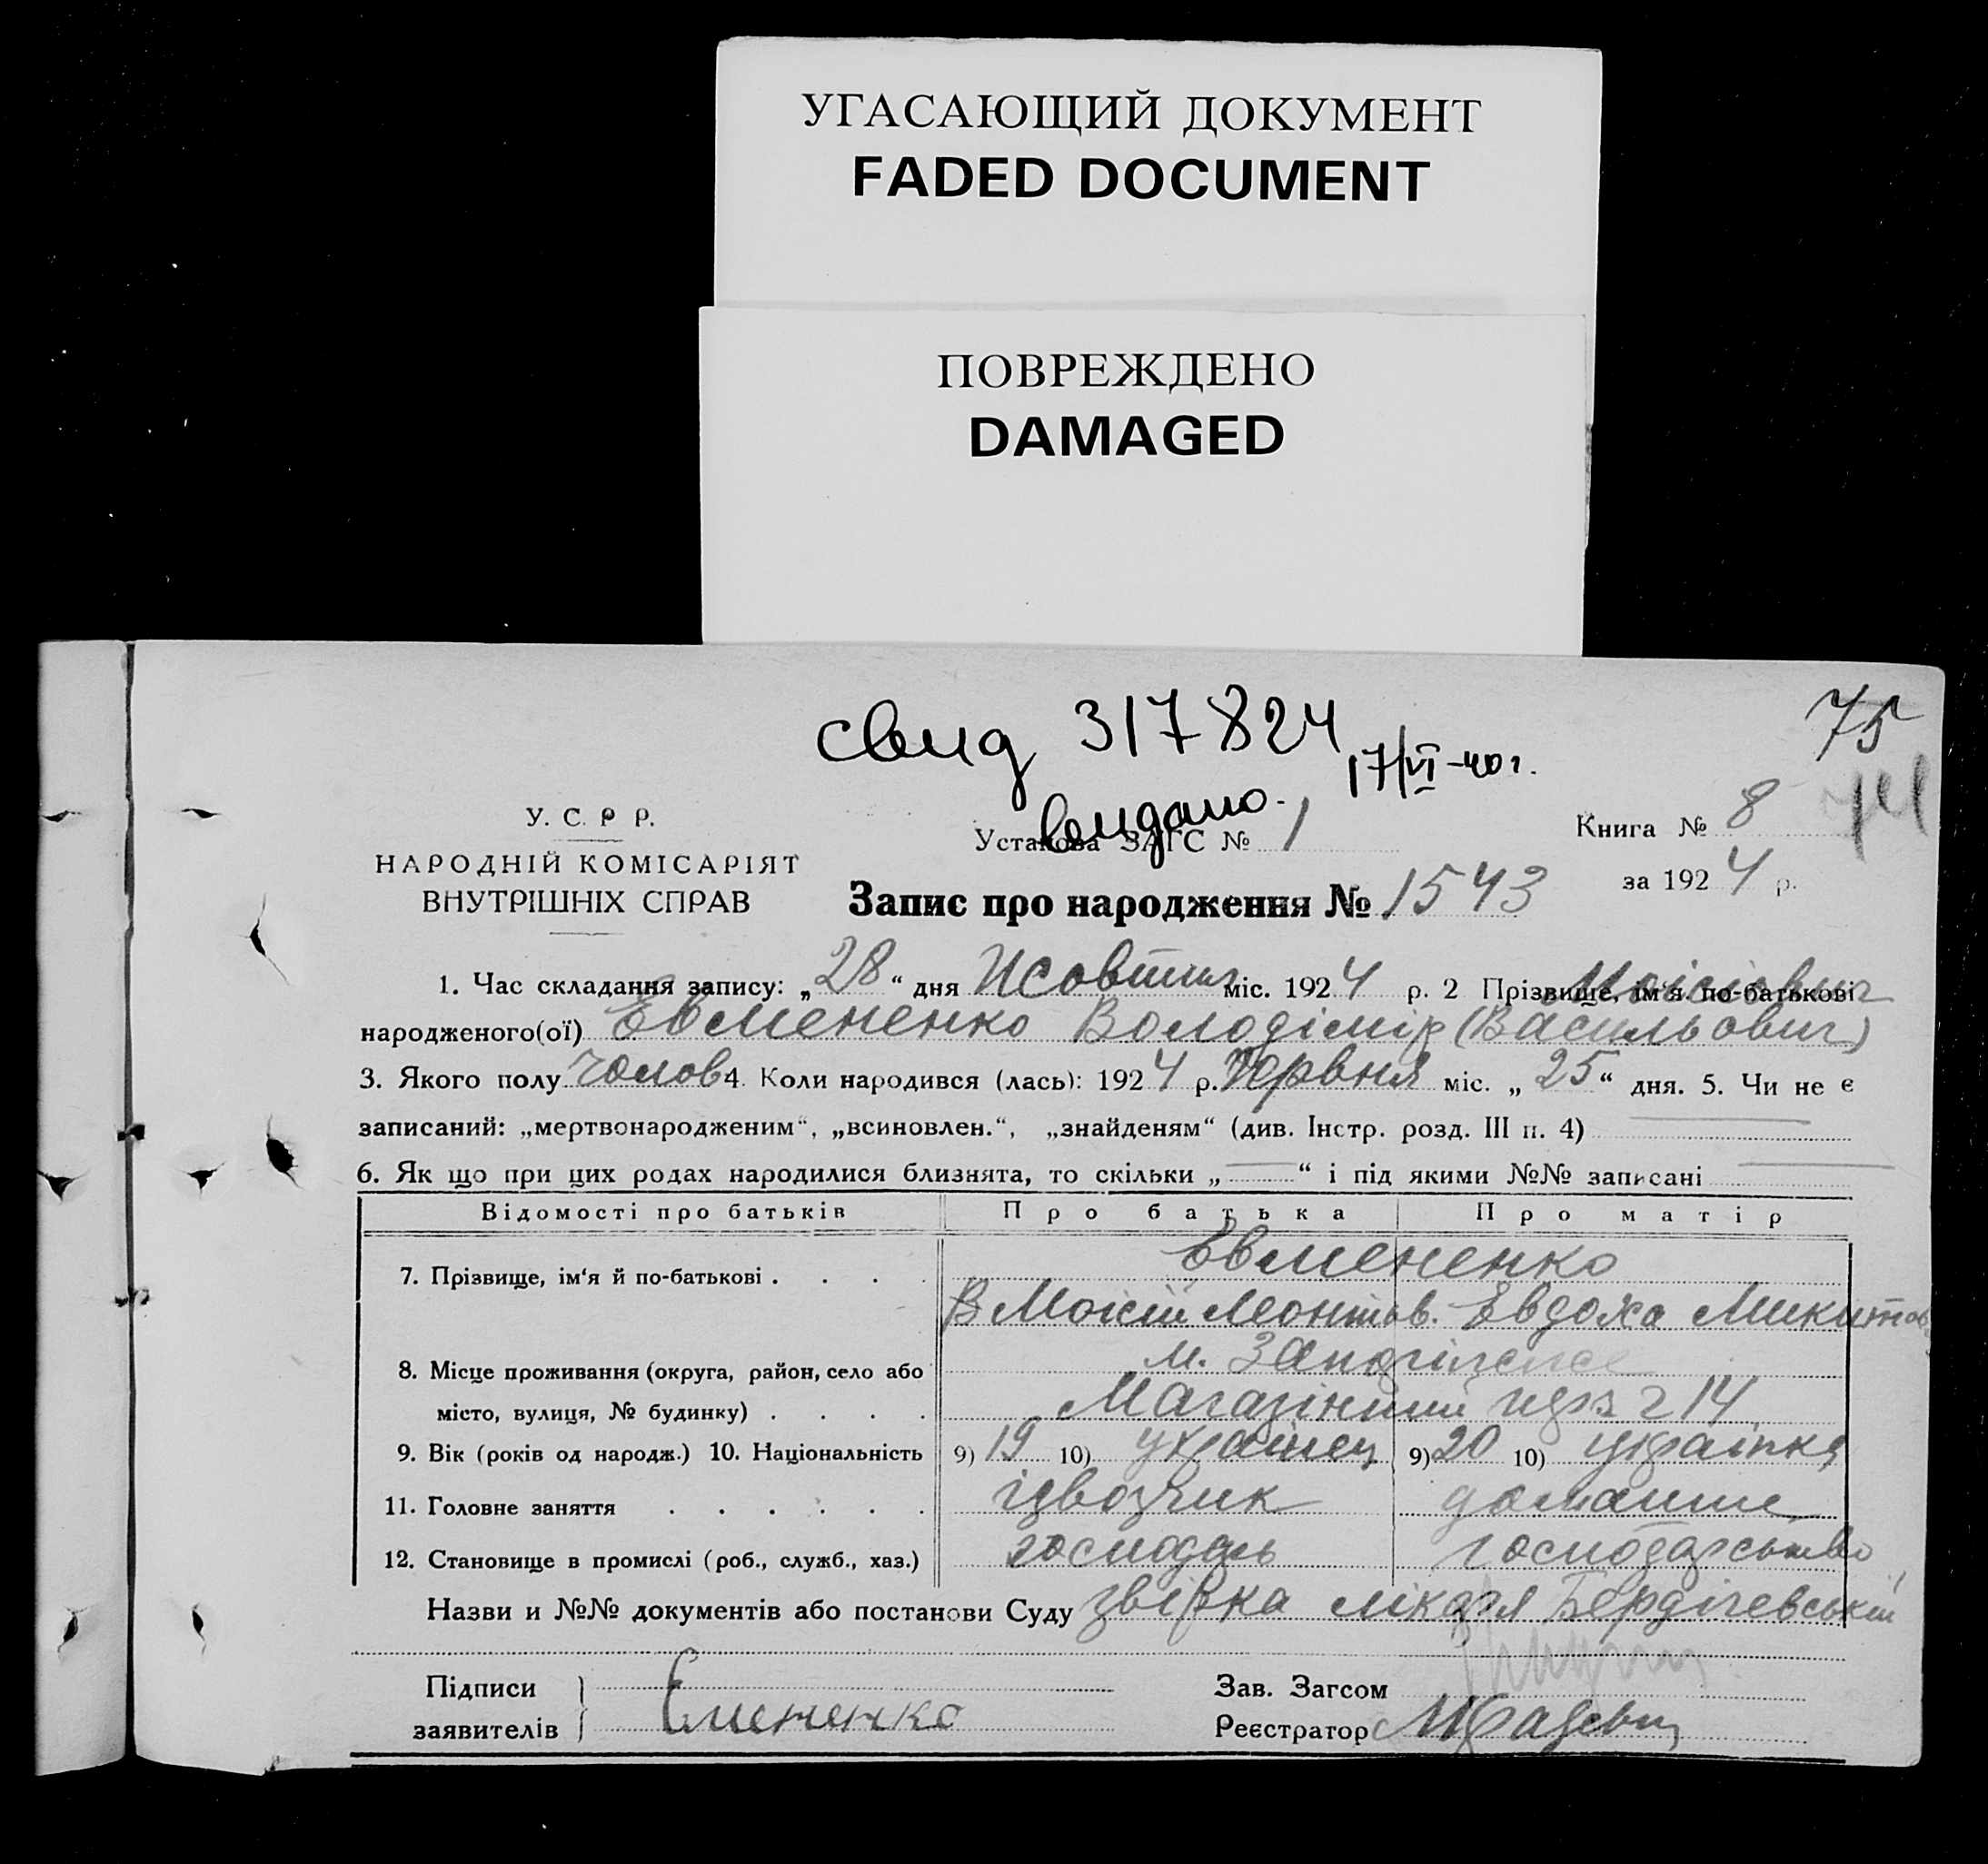 УГАСАЮЩИЙ ДОКУМЕНТ
FADED DOCUMENT
ПОВРЕЖДЕНО
DAMAGED
свид 317824
17/VI-40 г.
видано.
75
74
У. С. Р Р.
НАРОДНІЙ КОМІСАРІЯТ
ВНУТРІШНІХ СПРАВ
Установа ЗАГС № 1
Книга № 8
за 1924 р.
Запис про народження № 1543
1. Час складання запису: „28“ дня Жовтня міс. 1924 р. 2 Прізвище, ім'я, по-батькові Моісіович
народженого(ої) Евмененко Володімір (Васильович)
3. Якого полу чолов 4. Коли народився (лась): 1924 р. Червня міс. „25“ дня. 5. Чи не є
записаний: „мертвонародженим“, „всиновлен.“, „знайденям“ (див. Інстр. розд. III п. 4)
6. Як що при цих родах народилися близнята, то скільки „—“ і під якими №№ записані
Відомості про батьків Про батька Про матір
7. Прізвище, ім'я й по-батькові . . . . Евмененко
В Моісій Леонтьов. Евдоха Микитов
8. Місце проживання (округа, район, село або м.
місто, вулиця, № будинку) . . . . Магазінний 14
9. Вік (років од народж.) 10. Національність 9) 19 10) украінец 9) 20 10) украінка
11. Головне заняття . . . . . . ізвозчик домашне
12. Становище в промислі (роб., служб., хаз.) господарь господарсьтво
Назви и №№ документів або постанови Суду звірка лікаря Бердічевській
Підписи
заявителів Емененко
Зав. Загсом
Реєстратор